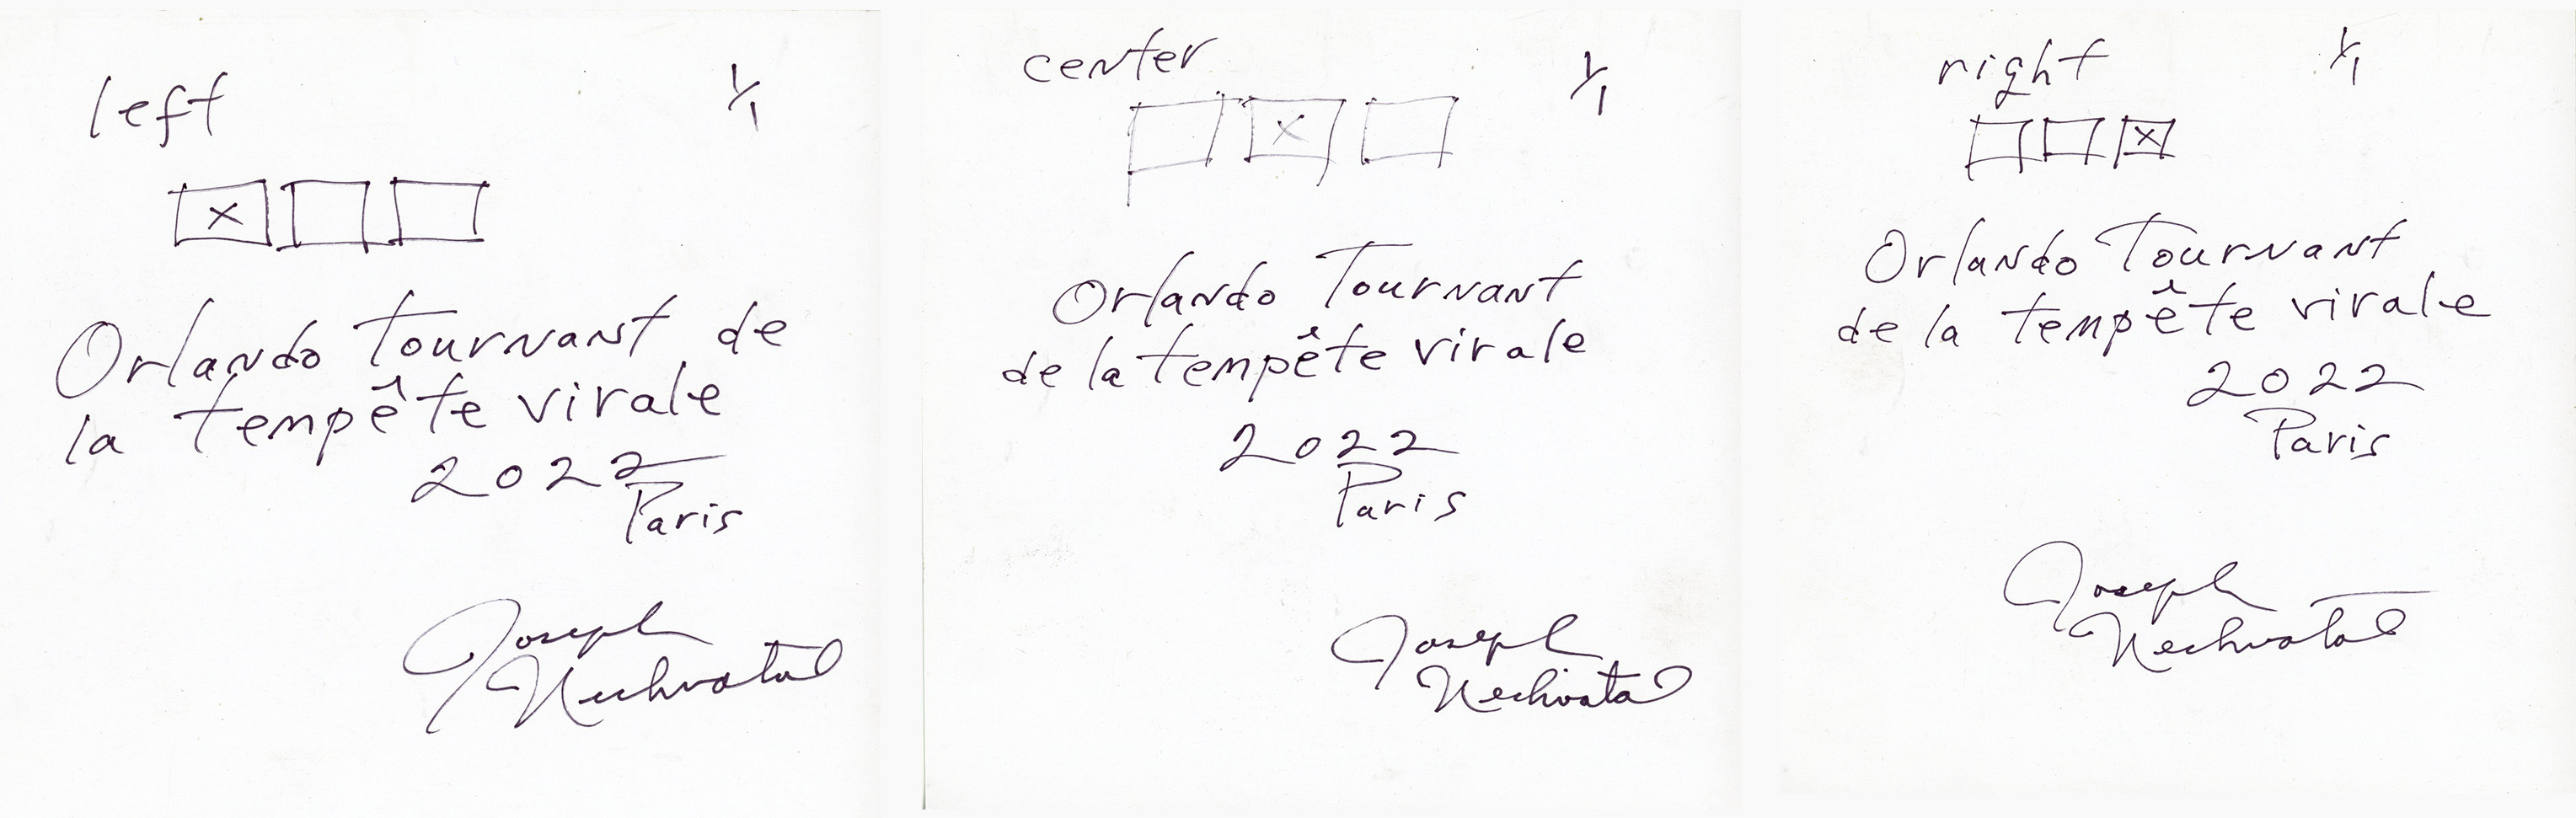 left
1/1
X
Orlando Tournant de
la tempête virale
2022
Paris
Joseph
Nechvatal
center
1/1
X
Orlando Tournant
de la tempête virale
2022
Paris
Joseph
Nechvatal
right
1/1
X
Orlando Tournant
de la tempête virale
2022
Paris
Joseph
Nechvatal